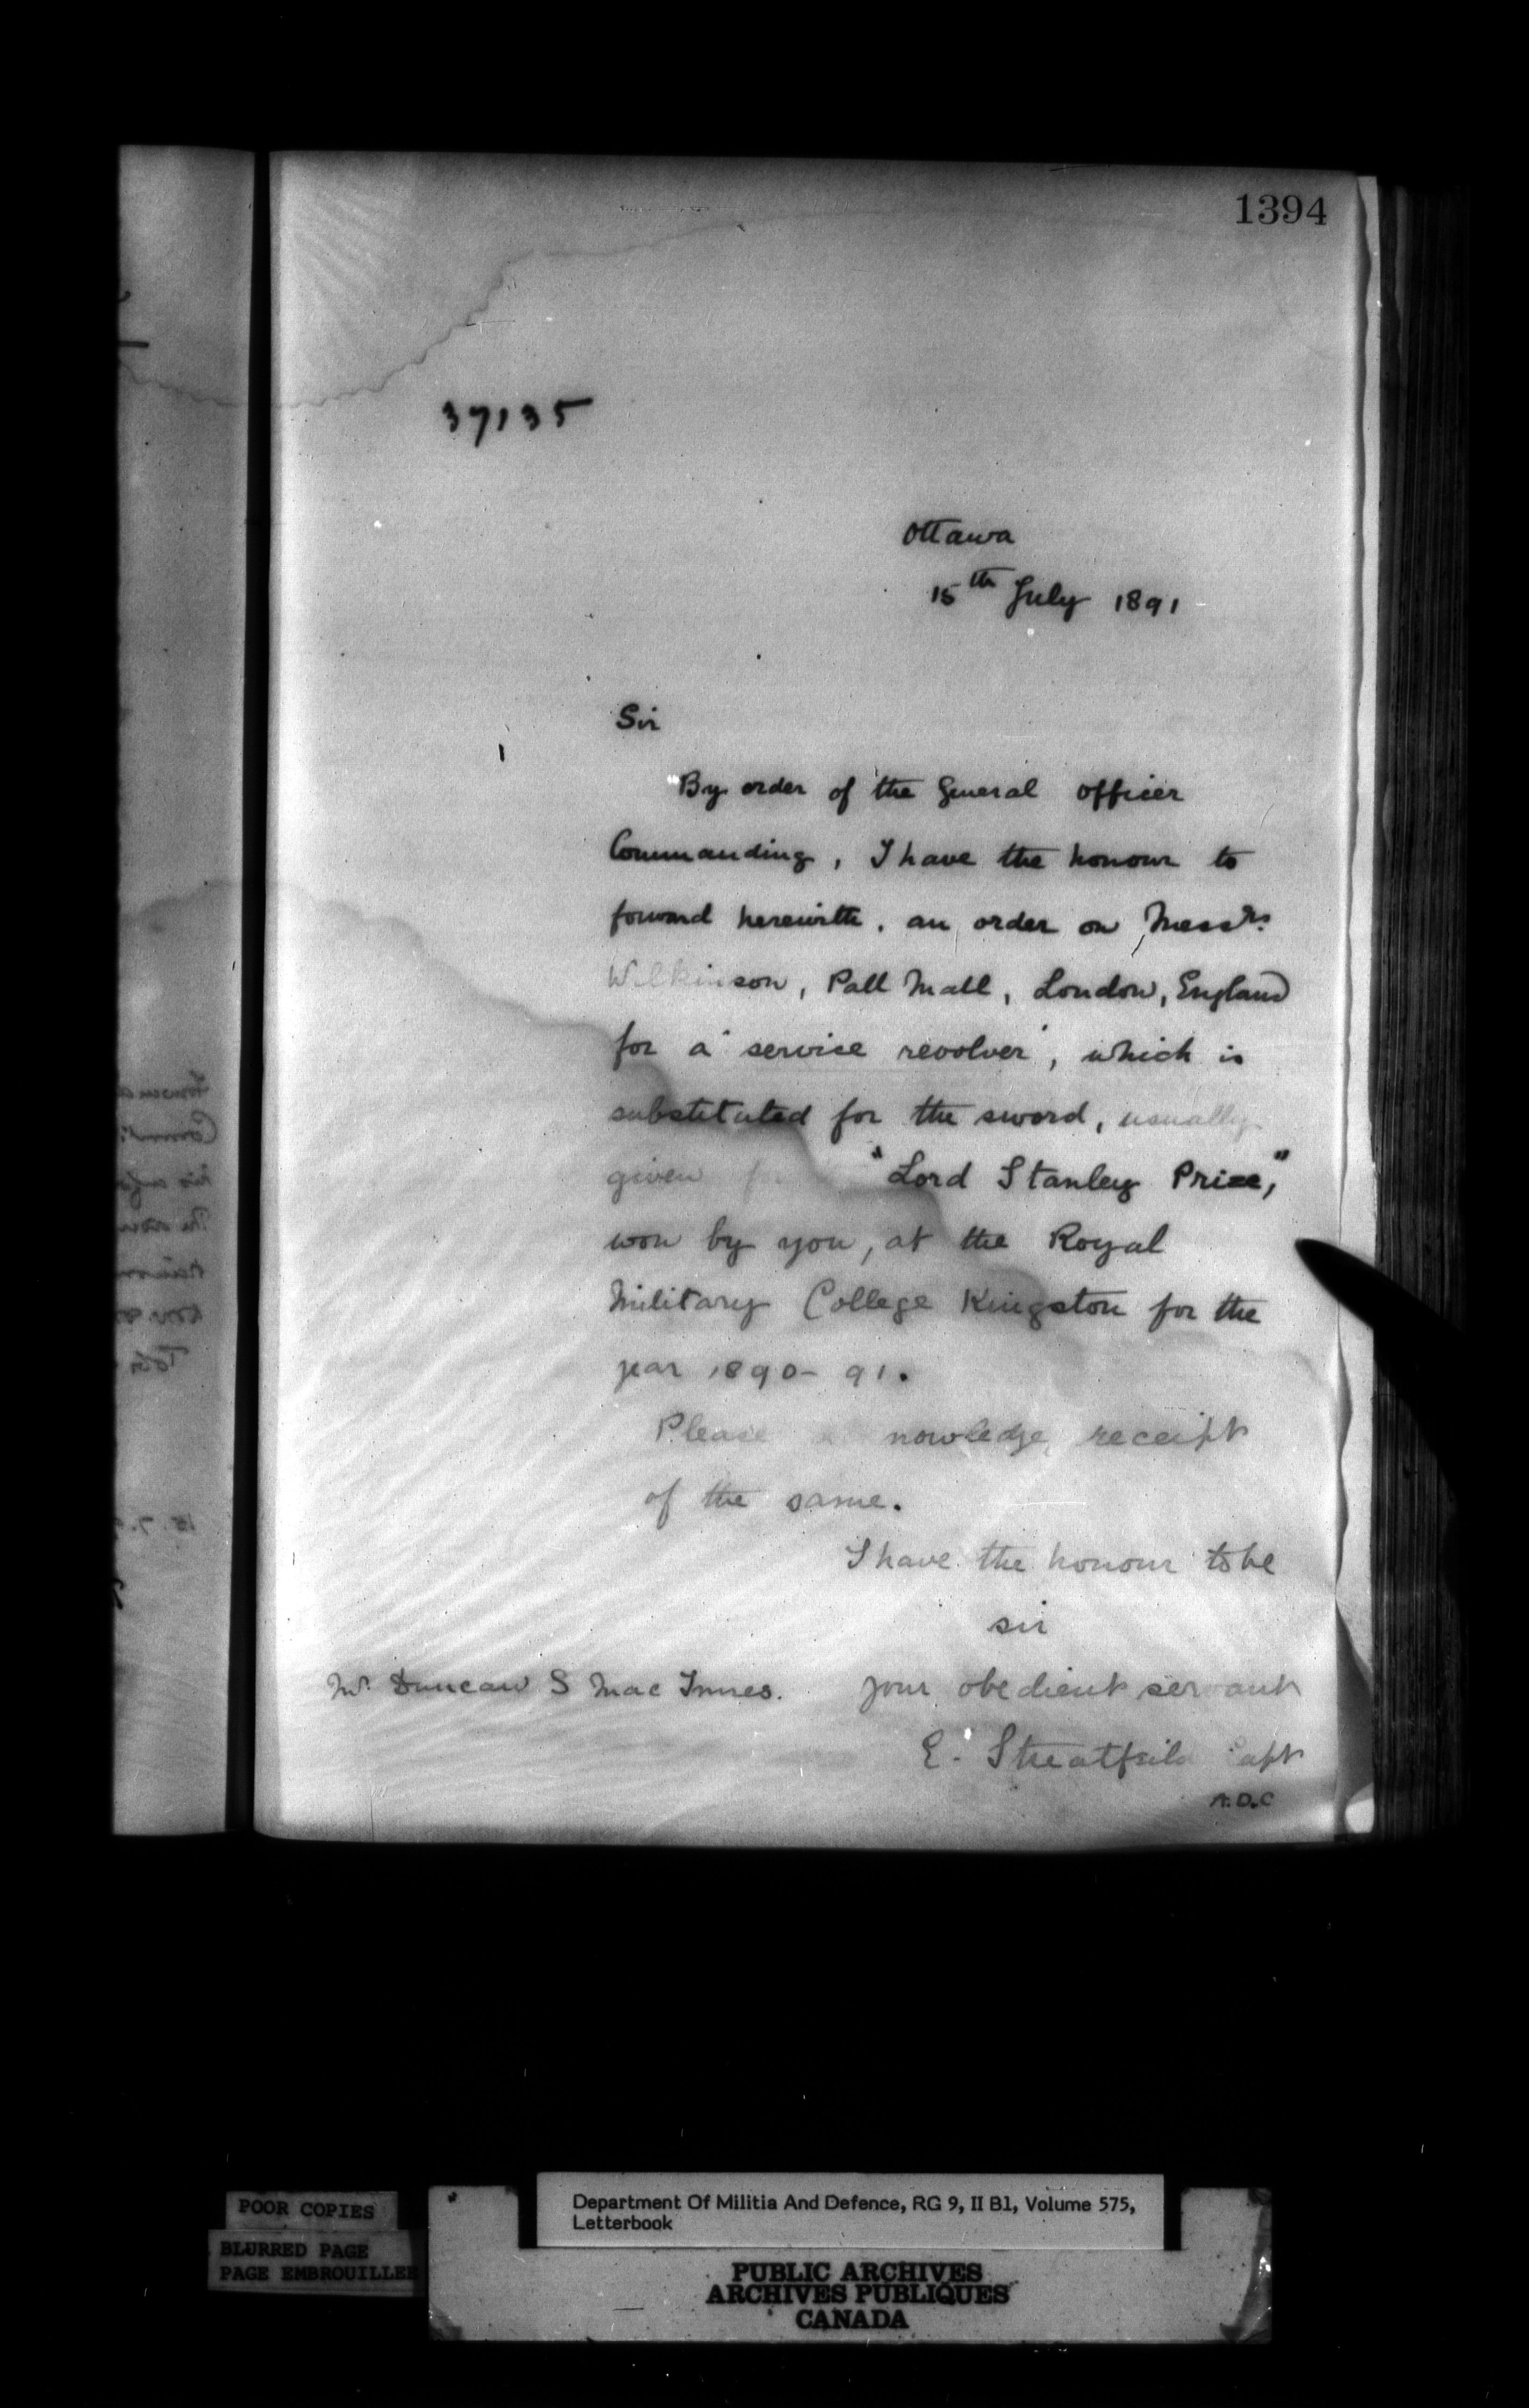 1394
37135
Ottawa
15th July 1891
Sir
By order of the General Officer
Commanding, I have the honour to
forward herewith, an order on Messrs.
Wilkinson, Pall Mall, London, England
for a "service revolver", which is
substituted for the sword, usually
given "Lord Stanley Prize,"
won by you, at the Royal
Military College Kingston for the
year 1890-91.
Please nowledge receipt
of the same.
I have the honour to be
sir
Mr. Duncan S Mac Innes. your obedient servant
E. Streatfeild Capt
A.D.C
POOR COPIES
BLURRED PAGE
PAGE EMBROUILLEE
Department Of Militia And Defence, RG 9, II B1, Volume 575,
Letterbook
PUBLIC ARCHIVES
ARCHIVES PUBLIQUES
CANADA